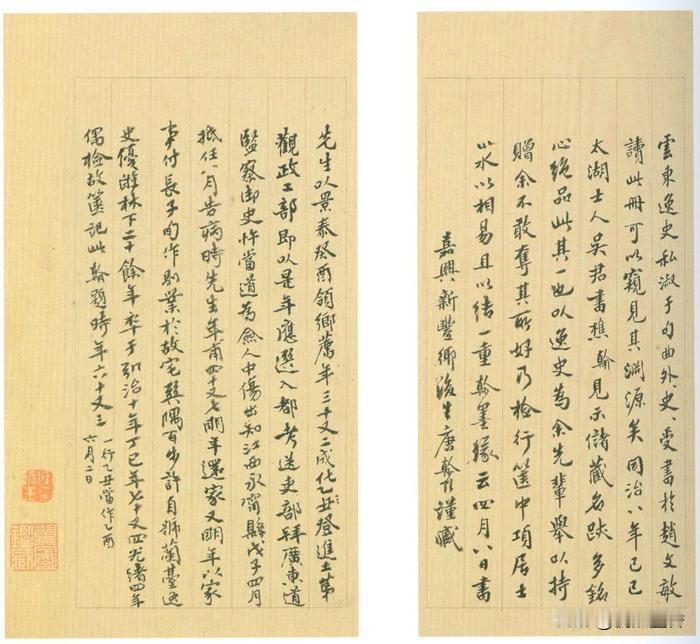 雲東逸史私淑于句曲外史受書於趙文敏
讀此冊可以窺見其淵源矣同治八年己巳
太湖士人吳君書樵翰見示儲藏名跡多銘
心絕品此其一也以逸史為余先輩舉以持
贈余不敢奪其所好乃檢行篋中項居士
山水以相易且以結一重翰墨緣云四月八日書
嘉興新豐鄉後生唐翰題謹藏
先生以景泰癸酉領鄉薦年三十又二成化乙丑登進士第
觀政工部即以是年應選入都考送吏部拜廣東道
監察御史忤當道為僉人中傷出知江西永甯縣戊子四月
抵任八月告病時先生年甫四十又七明年還家又明年以家
事付長子旬作別業於故宅巽隅百步許自號蘭臺逸
史優游林下二十餘年卒于弘治十年丁巳年七十又四光緒四年
偶檢故篋記此翰題時年六十又三
一行乙丑當作乙酉
六月二日